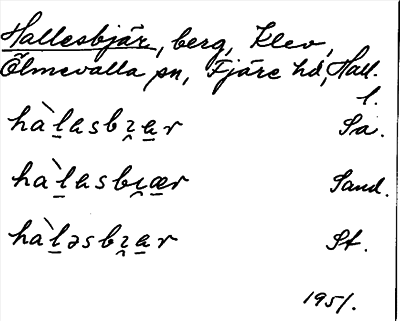 Hallesbjär, berg, Klev,
Ölmevalla sn, Fjäre hd, Hall.
l.
hàl̲asbɪ̯a̲r Sa.
hàl̲asbɪ̯æ̲r Sand.
hàl̲əsbɪ̯a̲r St.
1951.